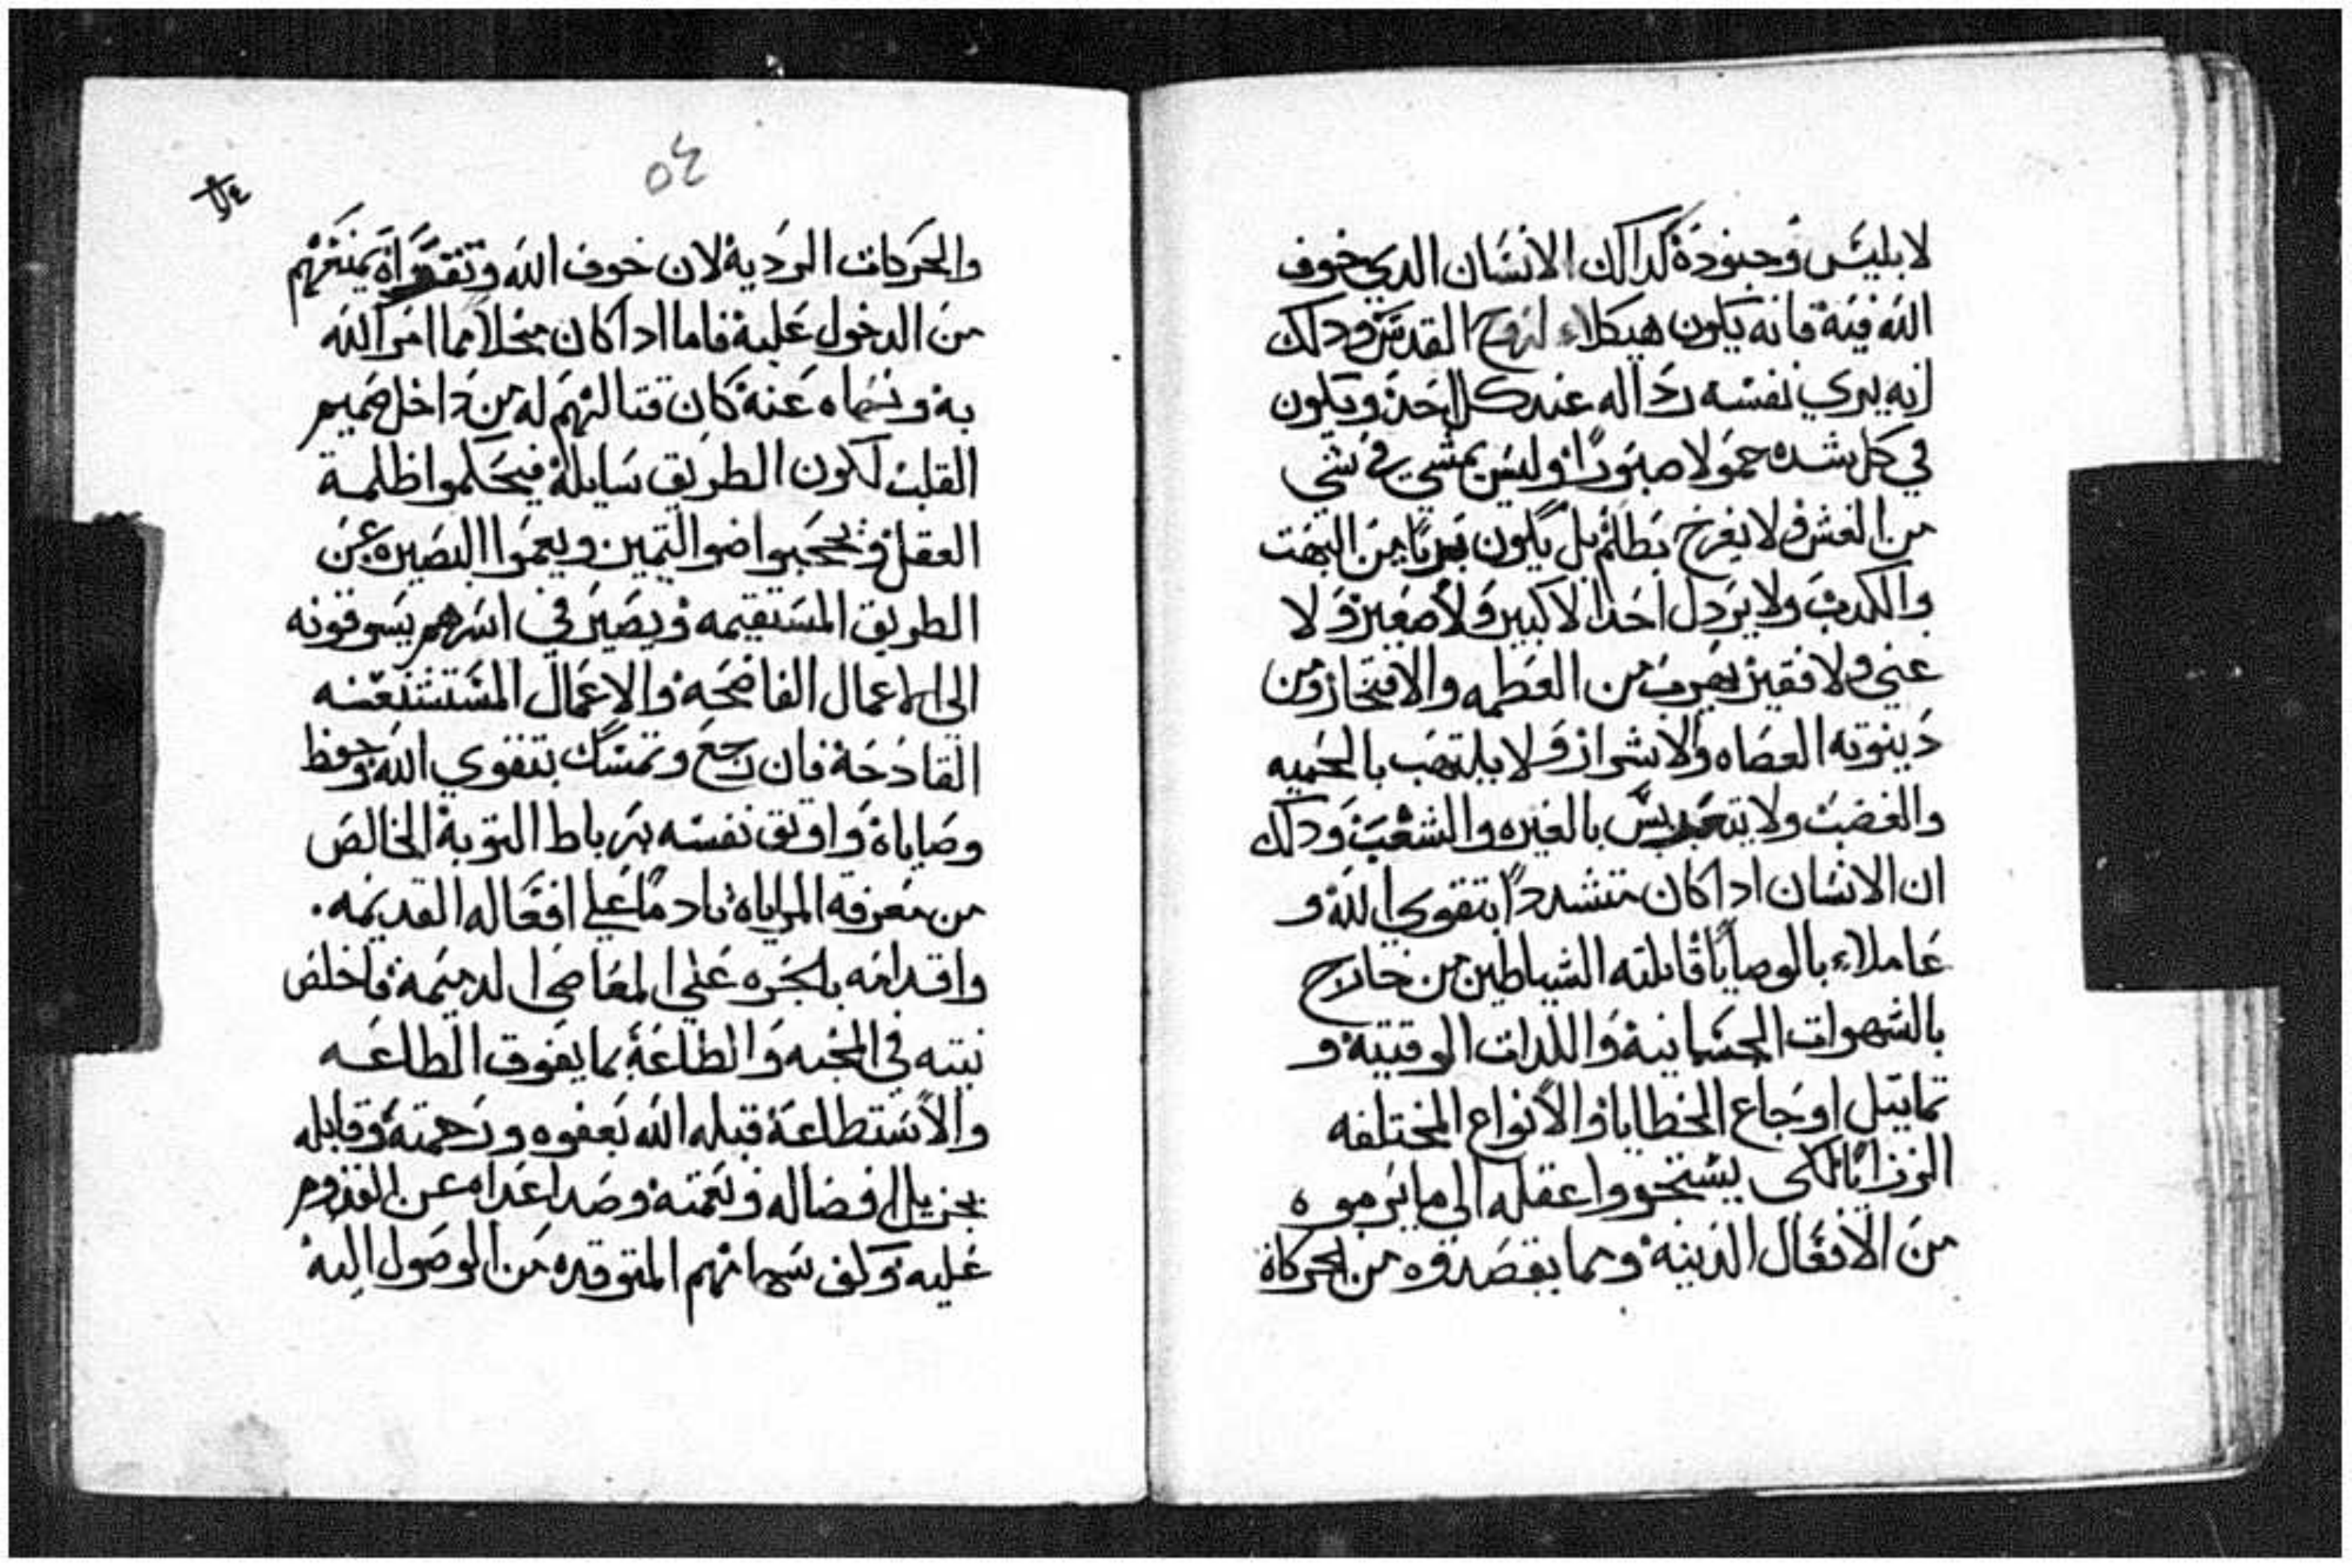 لابليس وجنوده كدالك الانسان الدي خوف
الله فيه فانه يكون هيكلاء لروح القدس ودلك
انه يري نفسه رداله عند كل احد ويكون
في كل شده حمولا صبورا وليس يمشي في شي
من الغش ولا يفرح بطالم بل يكون بريا من البهت
والكدب ولا يردل احدا لا كبير ولا صغير ولا
غني ولا فقير يهرب من العظمه والافتخار ومن
دينونه العصاه والاشرار ولا يلتهب بالحميه
والغضب ولا يتعبس بالغيره والشغب ودلك
ان الانسان ادا كان متشددا بتقوي الله و
عاملاء بالوصايا قابلته الشياطين من خارج
بالشهوات الجسمانيه واللدات الوقتيه و
تماتيل اوجاع الخطايا والانواع المختلفه
الرزايا لكي يستحووا عقله الي ما يرموه
من الافعال الدنيه ومما يقصدوه من الحركاة
٥٤
والحركات الرديه لان خوف الله وتقواه يمنعهم
من الدخول عليه فاما ادا كان مخلا مما امر الله
به ونهاه عنه كان قتالهم له من داخل صميم
القلب لكون الطريق سايله فيحكموا ظلمة
العقل ويحجبوا ضو التميز ويعموا البصيره عن
الطريق المستقيمه ويصير في اسرهم يسوقونه
الي الاعمال الفاضحه والاعمال المستشنعنه
القادحه فان رجع وتمسك بتقوي الله وحفظ
وصاياه واوتق نفسه برباط التوبه الخالص
من معرفه المراياه نادما علي افعاله القديمه .
واقدامه بالجره علي المعاصي الدميمه فاخلص
نيته في المحبه والطاعة بما يفوق الطاعه
والاستطاعه قبله الله بعفوه ورحمته وقابله
بجزيل افضاله ونعمته وصد اعداه عن القدوم
عليه وكف سهامهم المتوقده من الوصول اليه